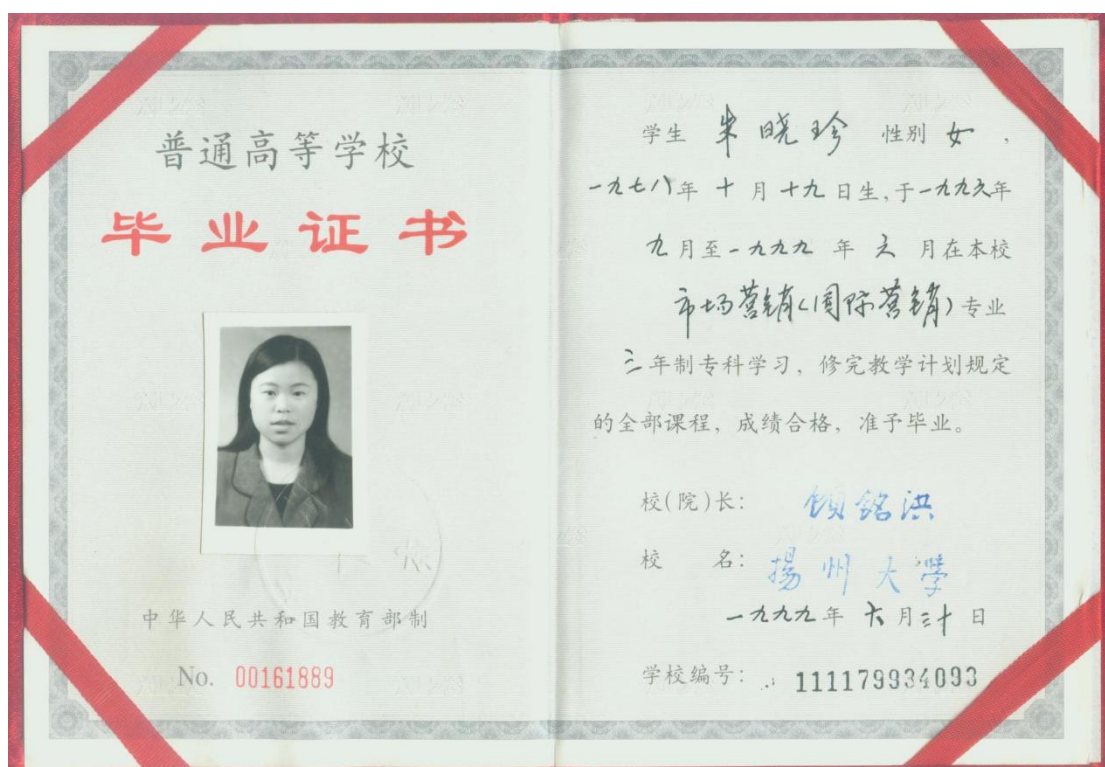 普通高等学校
毕业证书
中华人民共和国教育部制
No. 00161889
学生 朱晓珍 性别 女，
一九七八年 十 月 十九 日生，于一九九六年
九 月至一九九九 年 六 月在本校
市场营销（国际营销）专业
三 年制专科学习，修完教学计划规定
的全部课程，成绩合格，准予毕业。
校(院)长： 铭洪
校 名： 揚州大學
一九九九年 六 月三十 日
学校编号： 111179934093